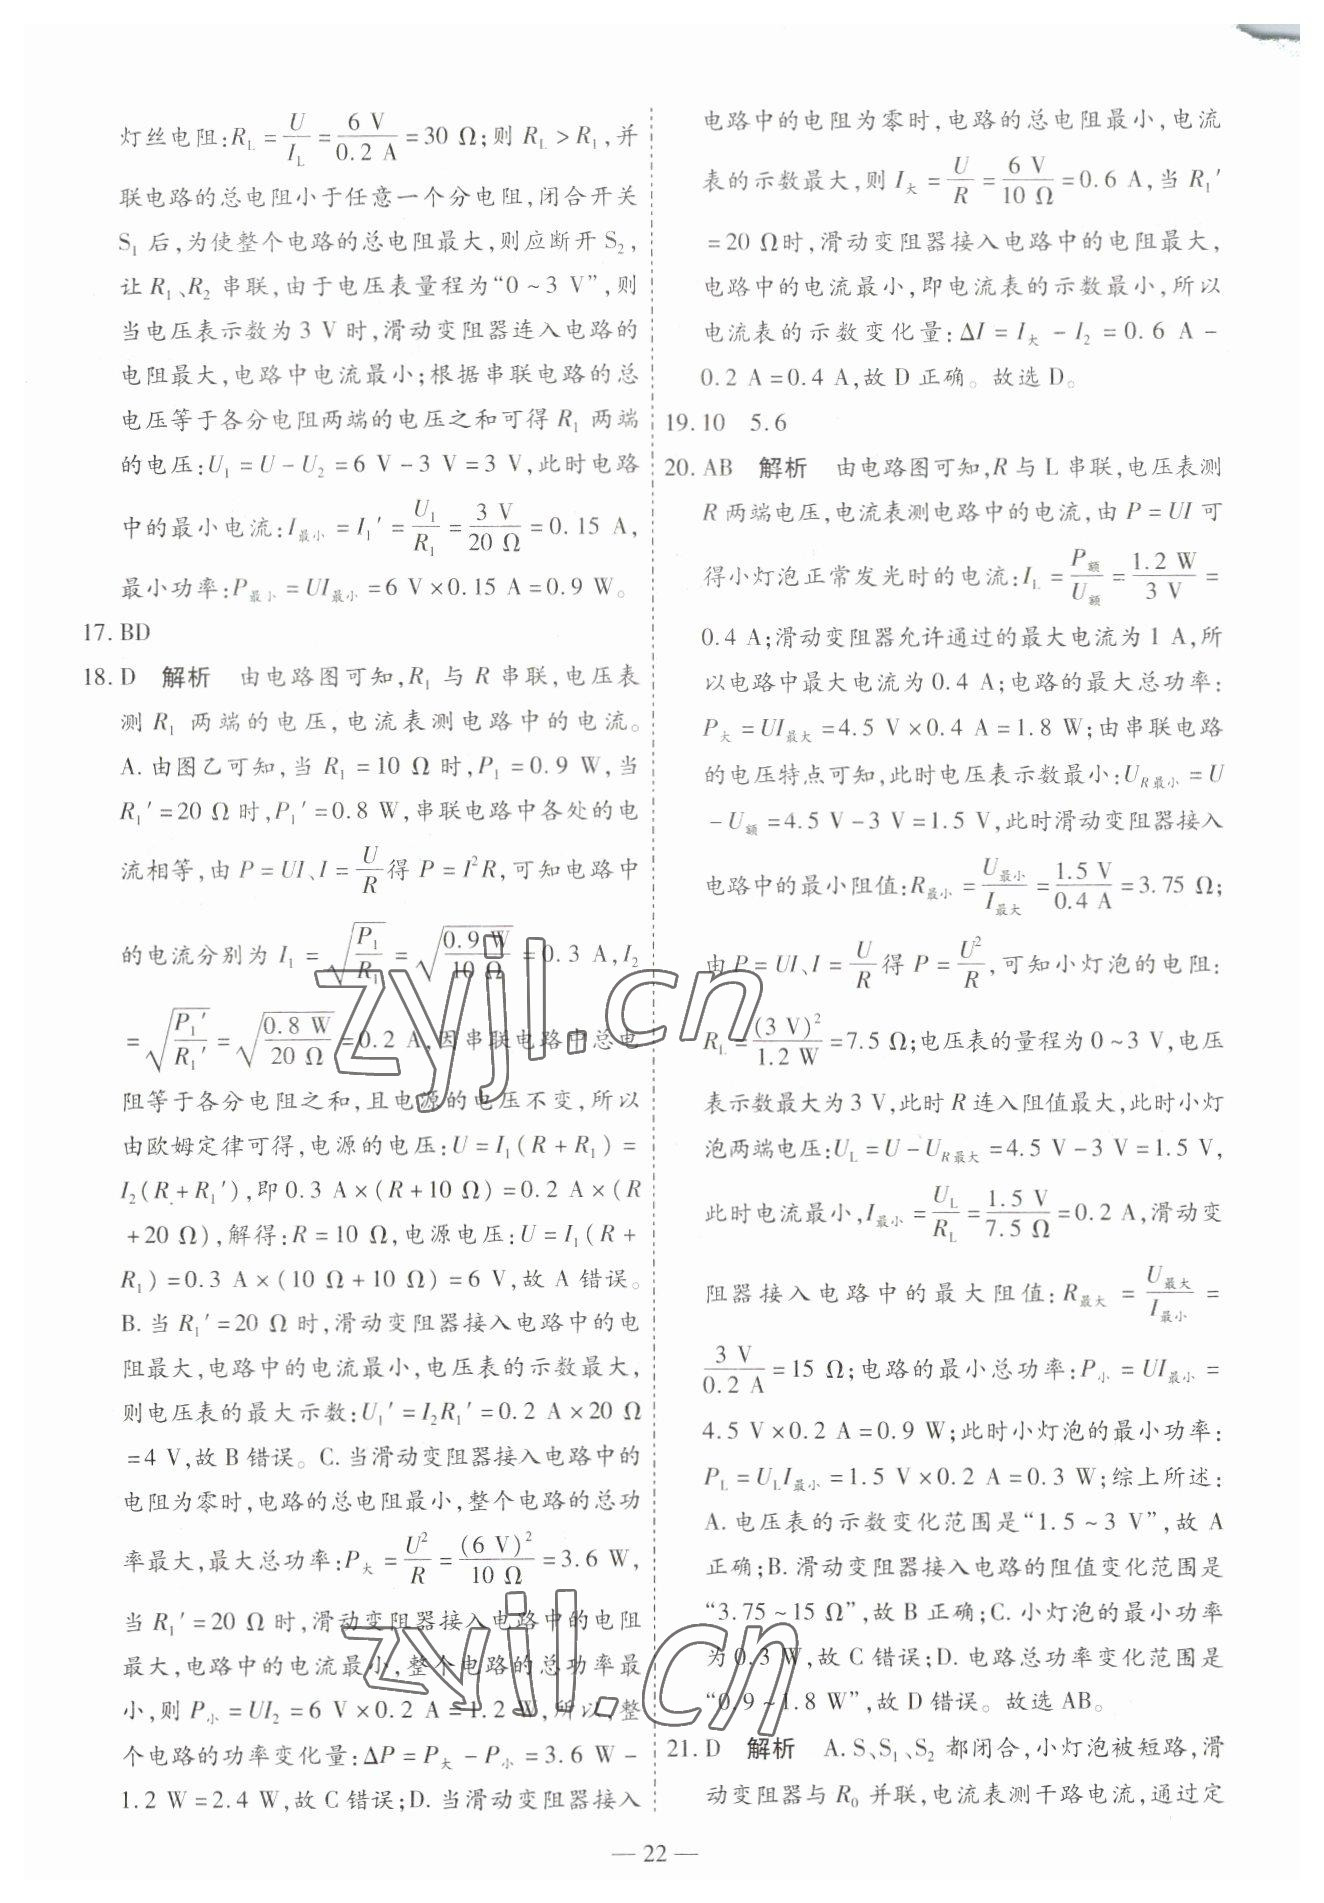 灯丝电阻:R_L=U/I_L=6 V/0.2 A=30 Ω;则 R_L>R₁,并
联电路的总电阻小于任意一个分电阻,闭合开关
S₁ 后,为使整个电路的总电阻最大,则应断开 S₂,
让 R₁、R₂ 串联,由于电压表量程为“0~3 V”,则
当电压表示数为 3 V 时,滑动变阻器连入电路的
电阻最大,电路中电流最小;根据串联电路的总
电压等于各分电阻两端的电压之和可得 R₁ 两端
的电压:U₁=U-U₂=6 V-3 V=3 V,此时电路
中的最小电流:I最小=I₁′=U₁/R₁=3 V/20 Ω=0.15 A,
最小功率:P最小=UI最小=6 V×0.15 A=0.9 W。
17. BD
18. D 解析 由电路图可知,R₁ 与 R 串联,电压表
测 R₁ 两端的电压,电流表测电路中的电流。
A. 由图乙可知,当 R₁=10 Ω 时,P₁=0.9 W,当
R₁′=20 Ω 时,P₁′=0.8 W,串联电路中各处的电
流相等,由 P=UI、I=U/R得 P=I²R,可知电路中
的电流分别为 I₁=√(P₁/R₁)=√(0.9 W/10 Ω)=0.3 A,I₂
=√(P₁′/R₁′)=√(0.8 W/20 Ω)=0.2 A,因串联电路中总电
阻等于各分电阻之和,且电源的电压不变,所以
由欧姆定律可得,电源的电压:U=I₁(R+R₁)=
I₂(R+R₁′),即 0.3 A×(R+10 Ω)=0.2 A×(R
+20 Ω),解得:R=10 Ω,电源电压:U=I₁(R+
R₁)=0.3 A×(10 Ω+10 Ω)=6 V,故 A 错误。
B. 当 R₁′=20 Ω 时,滑动变阻器接入电路中的电
阻最大,电路中的电流最小,电压表的示数最大,
则电压表的最大示数:U₁′=I₂R₁′=0.2 A×20 Ω
=4 V,故 B 错误。C. 当滑动变阻器接入电路中的
电阻为零时,电路的总电阻最小,整个电路的总功
率最大,最大总功率:P大=U²/R=(6 V)²/10 Ω=3.6 W,
当 R₁′=20 Ω 时,滑动变阻器接入电路中的电阻
最大,电路中的电流最小,整个电路的总功率最
小,则 P小=UI₂=6 V×0.2 A=1.2 W,所以,整
个电路的功率变化量:ΔP=P大-P小=3.6 W-
1.2 W=2.4 W,故 C 错误;D. 当滑动变阻器接入
电路中的电阻为零时,电路的总电阻最小,电流
表的示数最大,则 I大=U/R=6 V/10 Ω=0.6 A,当 R₁′
=20 Ω时,滑动变阻器接入电路中的电阻最大,
电路中的电流最小,即电流表的示数最小,所以
电流表的示数变化量:ΔI=I大-I₂=0.6 A-
0.2 A=0.4 A,故 D 正确。故选 D。
19. 10 5.6
20. AB 解析 由电路图可知,R 与 L 串联,电压表测
R 两端电压,电流表测电路中的电流,由 P=UI 可
得小灯泡正常发光时的电流:I_L=P额/U额=1.2 W/3 V=
0.4 A;滑动变阻器允许通过的最大电流为 1 A,所
以电路中最大电流为 0.4 A;电路的最大总功率:
P大=UI最大=4.5 V×0.4 A=1.8 W;由串联电路
的电压特点可知,此时电压表示数最小:U_R最小=U
-U额=4.5 V-3 V=1.5 V,此时滑动变阻器接入
电路中的最小阻值:R最小=U最小/I最大=1.5 V/0.4 A=3.75 Ω;
由 P=UI、I=U/R得 P=U²/R,可知小灯泡的电阻:
R_L=(3 V)²/1.2 W=7.5 Ω;电压表的量程为 0~3 V,电压
表示数最大为 3 V,此时 R 连入阻值最大,此时小灯
泡两端电压:U_L=U-U_R最大=4.5 V-3 V=1.5 V,
此时电流最小,I最小=U_L/R_L=1.5 V/7.5 Ω=0.2 A,滑动变
阻器接入电路中的最大阻值:R最大=U最大/I最小=
3 V/0.2 A=15 Ω;电路的最小总功率:P小=UI最小=
4.5 V×0.2 A=0.9 W;此时小灯泡的最小功率:
P_L=U_LI最小=1.5 V×0.2 A=0.3 W;综上所述:
A. 电压表的示数变化范围是“1.5~3 V”,故 A
正确;B. 滑动变阻器接入电路的阻值变化范围是
“3.75~15 Ω”,故 B 正确;C. 小灯泡的最小功率
为 0.3 W,故 C 错误;D. 电路总功率变化范围是
“0.9~1.8 W”,故 D 错误。故选 AB。
21. D 解析 A. S、S₁、S₂ 都闭合,小灯泡被短路,滑
动变阻器与 R₀ 并联,电流表测干路电流,通过定
— 22 —
zyjl.cn
zyjl.cn